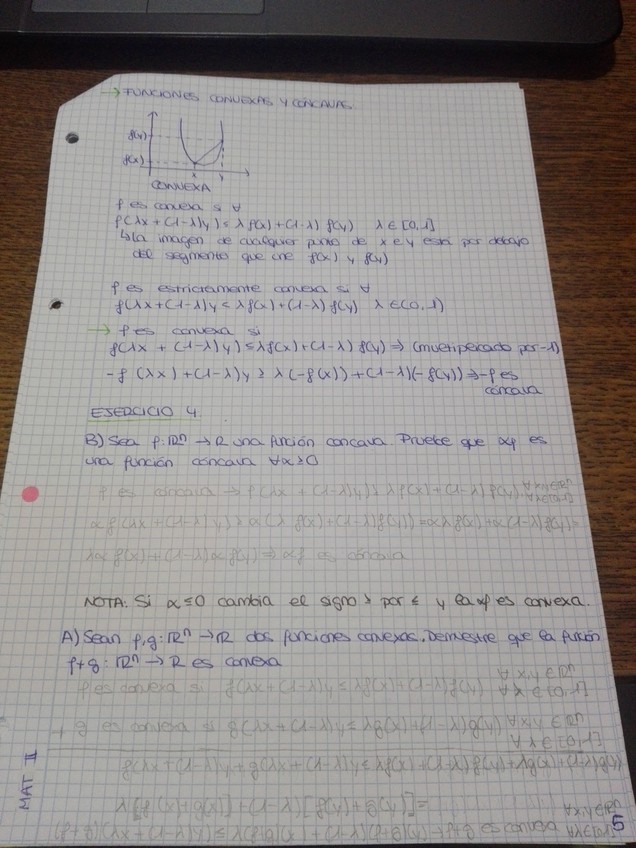 → FUNCIONES CONVEXAS Y CÓNCAVAS.
f(y)
f(x)
x y
CONVEXA
f es convexa si ∀
f(λx + (1-λ)y) ≤ λ f(x) + (1-λ) f(y) λ ∈ [0,1]
↳ La imagen de cualquier punto de x e y está por debajo
del segmento que une f(x) y f(y)
f es estrictamente convexa si ∀
f(λx + (1-λ)y < λf(x) + (1-λ) f(y) λ ∈ (0,1)
→ f es convexa si
f(λx + (1-λ)y) ≤ λf(x) + (1-λ) f(y) ⇒ (multiplicado por -1)
-f (λx) + (1-λ)y ≥ λ(-f(x)) + (1-λ)(-f(y)) ⇒ -f es
cóncava
EJERCICIO 4.
B) Sea f: ℝⁿ → ℝ una función cóncava. Pruebe que αf es
una función cóncava ∀α ≥ 0
f es cóncava → f(λx + (1-λ)y) ≥ λf(x) + (1-λ) f(y). ∀x,y ∈ ℝⁿ
∀λ ∈ [0,1]
αf(λx + (1-λ)y) ≥ α(λ f(x) + (1-λ)f(y)) = αλ f(x) + α(1-λ)f(y) =
λα f(x) + (1-λ)αf(y) ⇒ αf es cóncava
NOTA: Si α ≤ 0 cambia el signo ≥ por ≤ y la αf es convexa.
A) Sean f,g: ℝⁿ → ℝ dos funciones convexas. Demuestre que la función
f+g: ℝⁿ → ℝ es convexa
f es convexa si f(λx + (1-λ)y ≤ λf(x) + (1-λ)f(y) ∀ x,y ∈ ℝⁿ
∀ λ ∈ [0,1]
+ g es convexa si g(λx + (1-λ)y ≤ λg(x) + (1-λ)g(y) ∀x,y ∈ ℝⁿ
∀ λ ∈ [0,1]
f(λx + (1-λ)y + g(λx + (1-λ)y ≤ λf(x) + (1-λ) f(y) + λg(x) + (1-λ)g(y)
λ[f(x) + g(x)] + (1-λ)[f(y) + g(y)] =
∀x,y ∈ ℝⁿ
(f+g)(λx + (1-λ)y) ≤ λ(f+g)(x) + (1-λ)(f+g)(y) → f+g es convexa
MAT II
5